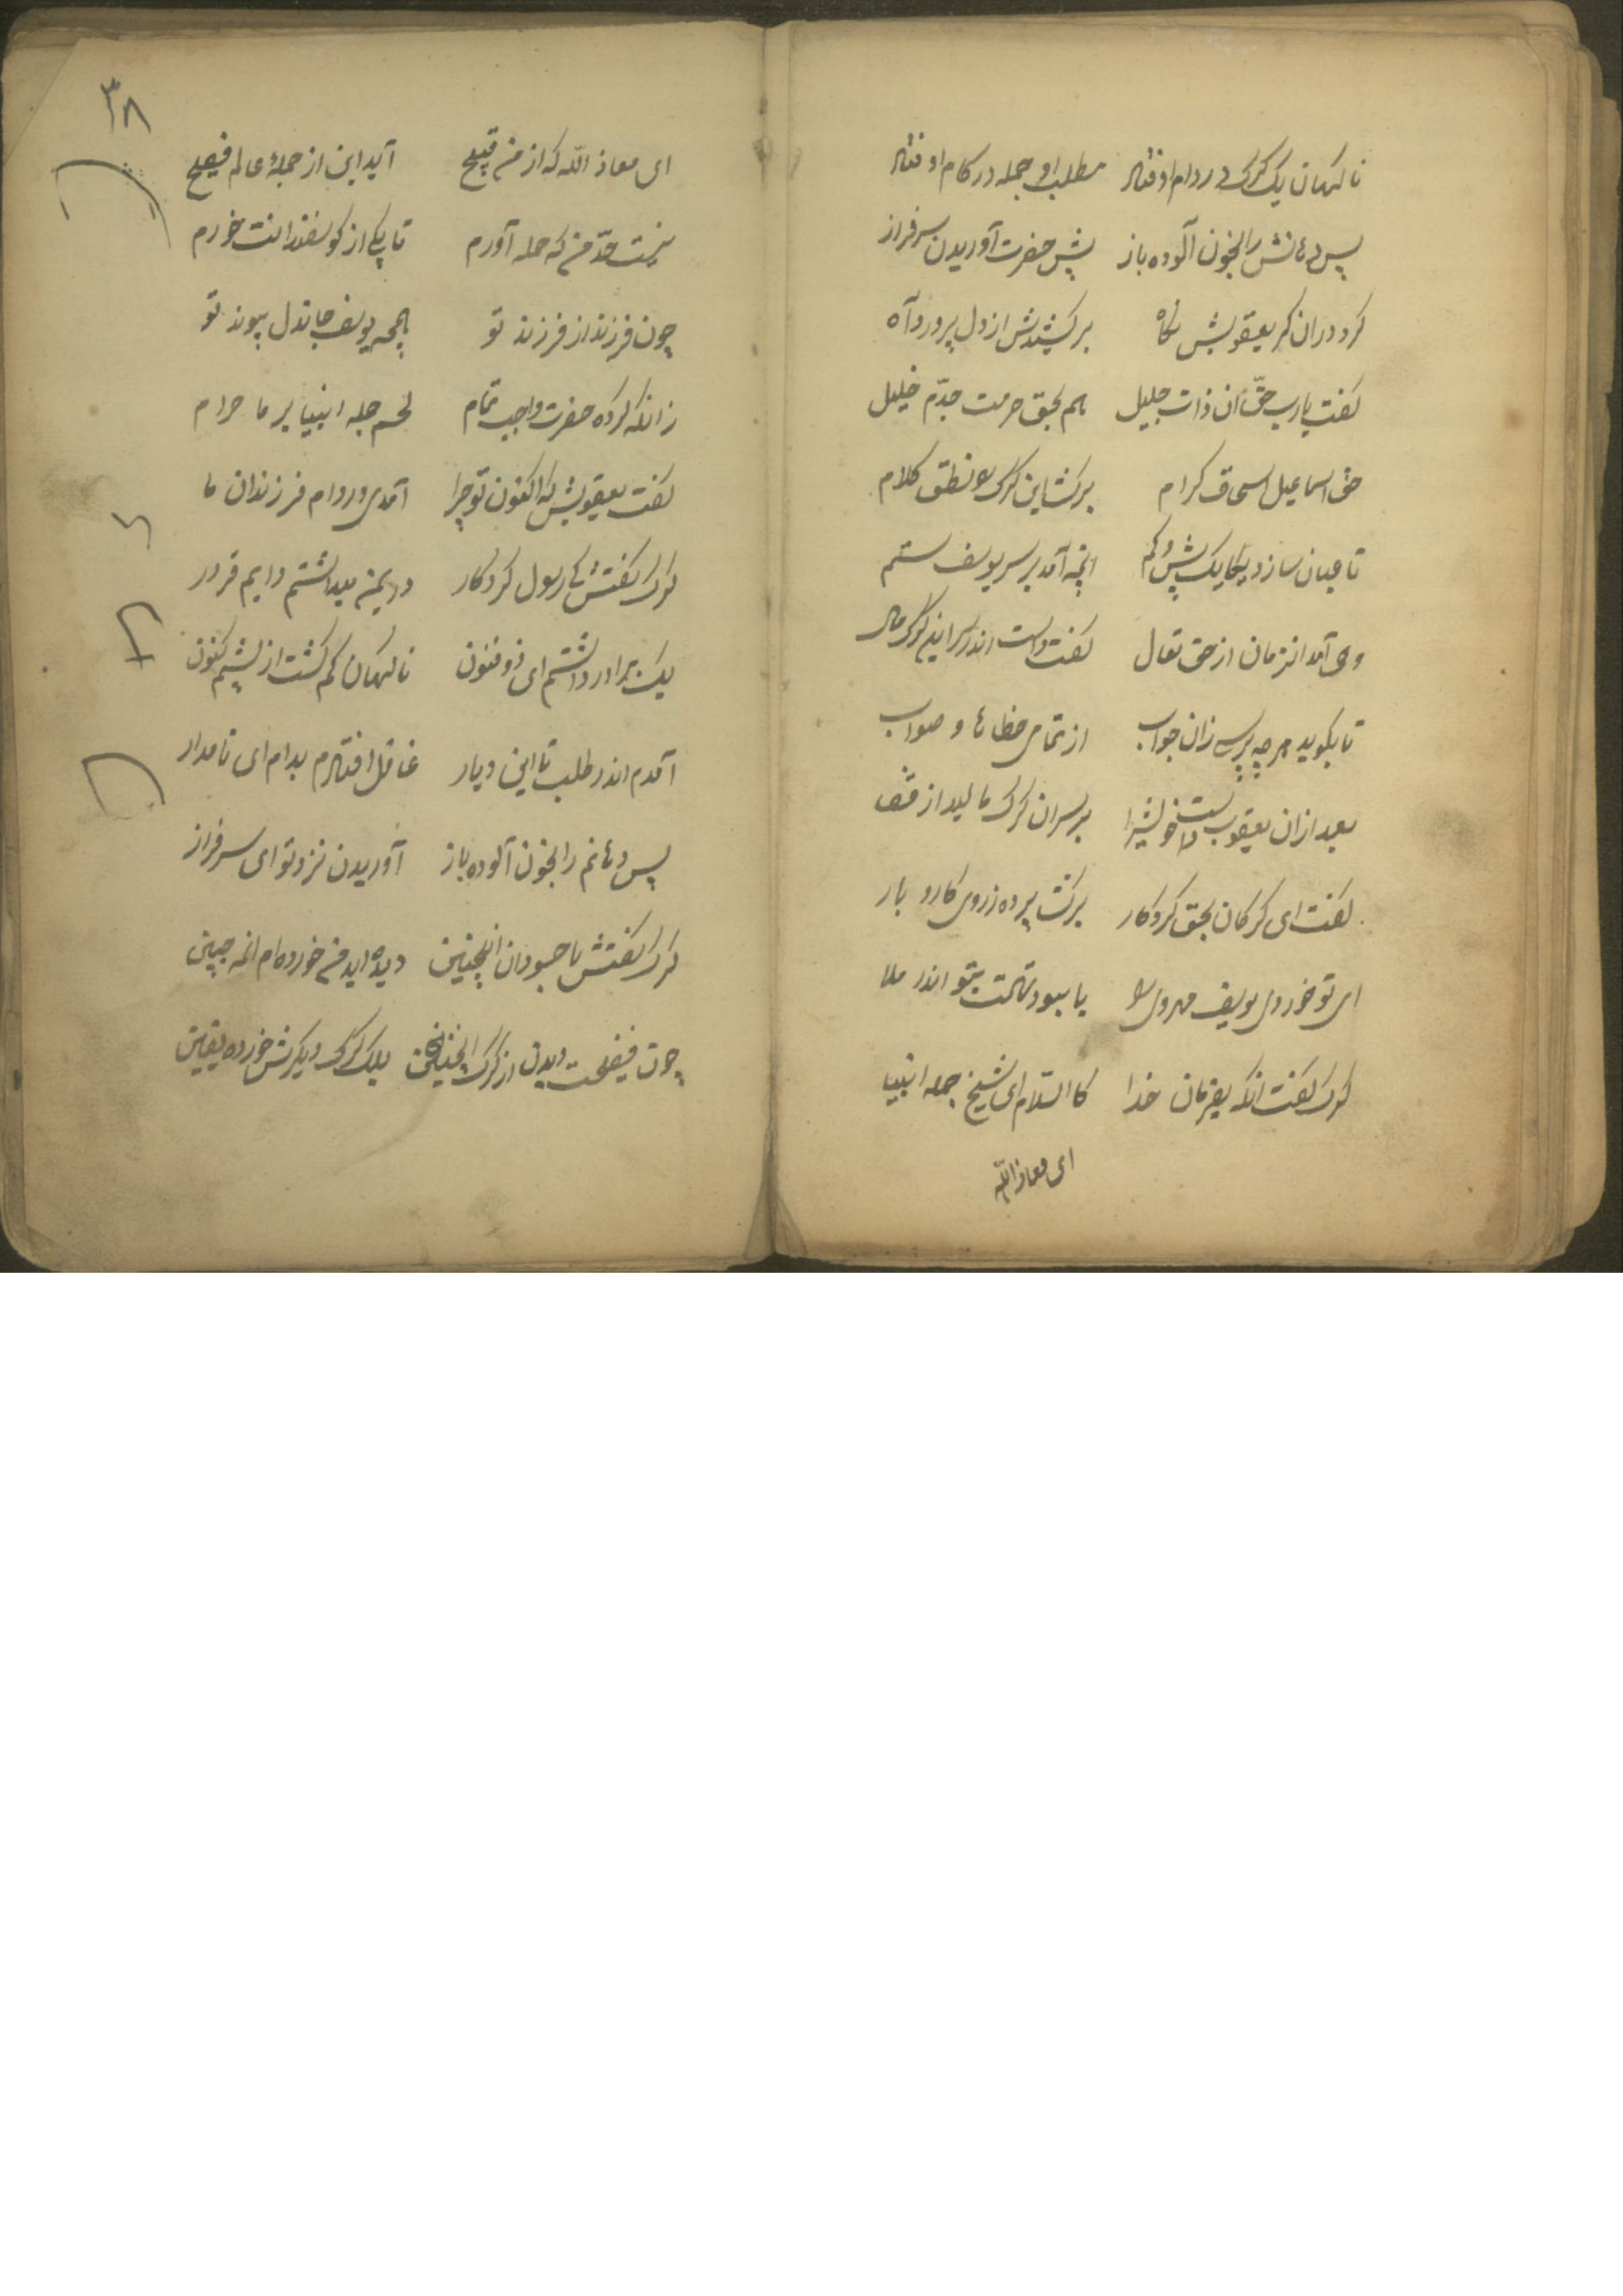 ناکهان یک کرک در دام اوفتاد مطلب او جمله در کام اوفتاد
پس دهانش را بخون آلوده باز پیش حضرت آوریدن سرفراز
کرد در ان کرک یعقوبش نکاه برکشیدش از دل پر درد آه
کفت یارب حق آن ذات جلیل هم بحق حرمت جدّم خلیل
حق اسماعیل اسحاق کرام برکشا این کرک را نطق کلام
تا عیان سازد یکایک بیش و کم انچه آمد بر سر یوسف ستم
وحی آمد انزمان از حق تعال کفت دست اندر سر این کرک مال
تا بکوید هر چه پرسی زان جواب از تمامی خطاها و صواب
بعد ازان یعقوب دست خویشرا بر سر ان کرک مالید از قفا
کفت ای کرکان بحق کردکار برکشا پرده ز روی کار و بار
ای تو خوردی یوسف مهروی را یا ببود تهمت بتو اندر ملا
کرک کفت انکه بفرمان خدا کالسّلام ای شیخ جمله انبیا
ای معاذ اللّه
۳۸
ای معاذ اللّه که از من قبیح آید این از جملهٔ عالم فیصح
نیست حدّ من که حمله آورم تا یکی از کوسفندانت خورم
چون فرزند از فرزند تو همچه یوسف جاندل پیوند تو
زانکه کرده حضرت واجب تمام لحم جمله انبیا بر ما حرام
کفت یعقوبش که اکنون تو چرا آمدی در دام فرزندان ما
کرک کفتش کای رسول کردکار در یمن میداشتم دایم قرار
یک برادر داشتم ای ذوفنون ناکهان کم کشت از پیشم کنون
آمدم اندر طلب تا این دیار غافل افتادم بدام ای نامدار
پس دهانم را بخون آلوده باز آوریدن نزد تو ای سرفراز
کرک کفتش با جهودان اینچنین دیده اید من خورده ام انمه جبین
چون فیضحت دیدن از کرک اینچنین بلک کرک دیکرش خورده یقین